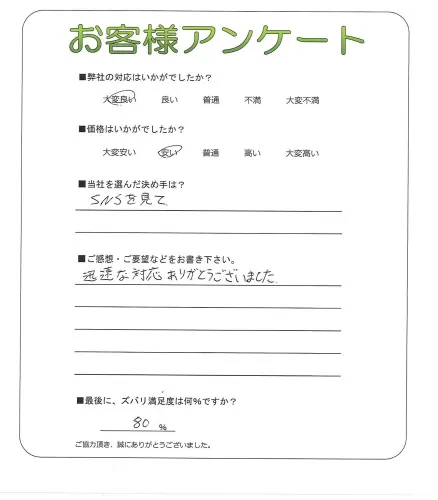 お客様アンケート
■弊社の対応はいかがでしたか?
大変良い 良い 普通 不満 大変不満
■価格はいかがでしたか?
大変安い 安い 普通 高い 大変高い
■当社を選んだ決め手は?
SNSを見て
■ご感想・ご要望などをお書き下さい。
迅速な対応ありがとうございました
■最後に、ズバリ満足度は何%ですか?
80 %
ご協力頂き、誠にありがとうございました。